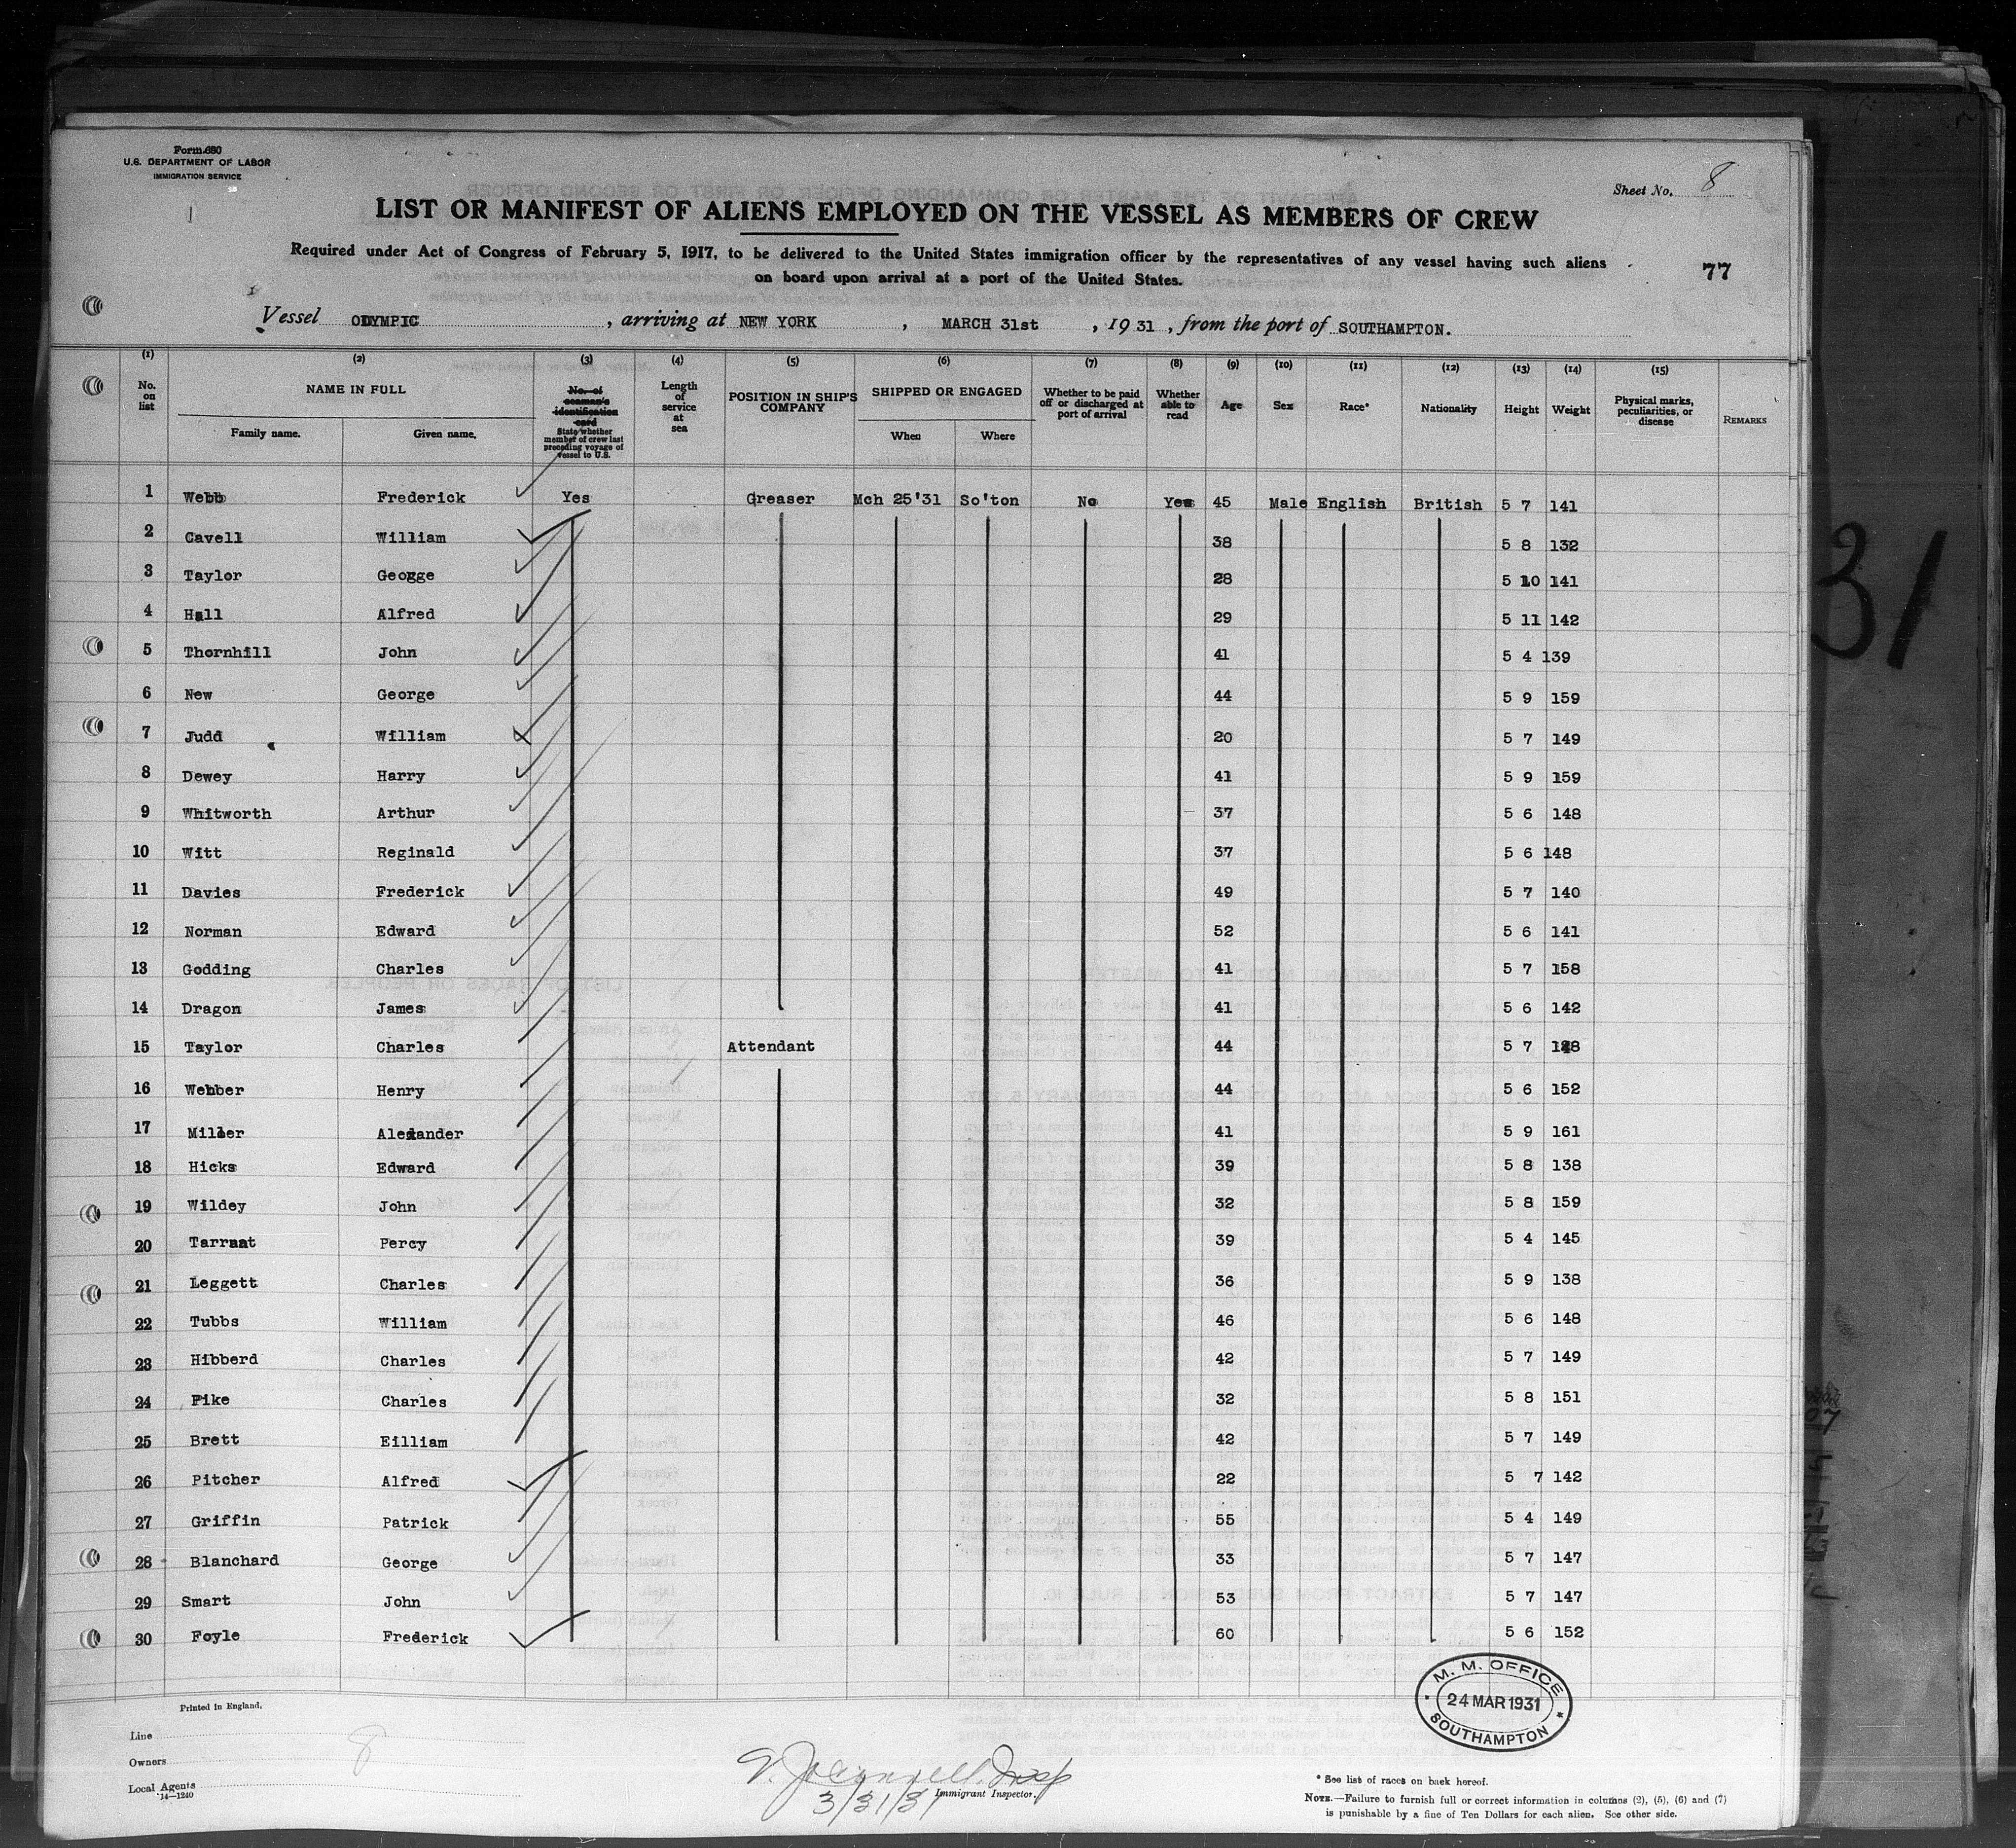 Form 680
U.S. DEPARTMENT OF LABOR
IMMIGRATION SERVICE
Sheet No. 8
LIST OR MANIFEST OF ALIENS EMPLOYED ON THE VESSEL AS MEMBERS OF CREW
Required under Act of Congress of February 5, 1917, to be delivered to the United States immigration officer by the representatives of any vessel having such aliens
on board upon arrival at a port of the United States.
77
Vessel OLYMPIC, arriving at NEW YORK, MARCH 31st, 1931, from the port of SOUTHAMPTON.
(1) (2) (3) (4) (5) (6) (7) (8) (9) (10) (11) (12) (13) (14) (15)
No. on list
NAME IN FULL
Family name. Given name.
No. of seaman's identification card
State whether member of crew last preceding voyage of vessel to U.S.
Length of service at sea
POSITION IN SHIP'S COMPANY
SHIPPED OR ENGAGED
When Where
Whether to be paid off or discharged at port of arrival
Whether able to read
Age
Sex
Race*
Nationality
Height
Weight
Physical marks, peculiarities, or disease
REMARKS
1 Webb Frederick Yes Greaser Mch 25'31 So'ton No Yes 45 Male English British 5 7 141
2 Cavell William 38 5 8 132
3 Taylor Geogge 28 5 10 141
4 Hall Alfred 29 5 11 142
5 Thornhill John 41 5 4 139
6 New George 44 5 9 159
7 Judd William 20 5 7 149
8 Dewey Harry 41 5 9 159
9 Whitworth Arthur 37 5 6 148
10 Witt Reginald 37 5 6 148
11 Davies Frederick 49 5 7 140
12 Norman Edward 52 5 6 141
13 Godding Charles 41 5 7 158
14 Dragon James 41 5 6 142
15 Taylor Charles Attendant 44 5 7
16 Webber Henry 44 5 6 152
17 Miller Alexander 41 5 9 161
18 Hicks Edward 39 5 8 138
19 Wildey John 32 5 8 159
20 Tarrant Percy 39 5 4 145
21 Leggett Charles 36 5 9 138
22 Tubbs William 46 5 6 148
23 Hibberd Charles 42 5 7 149
24 Pike Charles 32 5 8 151
25 Brett Eilliam 42 5 7 149
26 Pitcher Alfred 22 5 7 142
27 Griffin Patrick 55 5 4 149
28 Blanchard George 33 5 7 147
29 Smart John 53 5 7 147
30 Foyle Frederick 60 5 6 152
M. M. OFFICE
24 MAR 1931
SOUTHAMPTON
Printed in England.
Line
Owners 8
Local Agents
14—1240
Insp
3/31/31
Immigrant Inspector.
* See list of races on back hereof.
NOTE.—Failure to furnish full or correct information in columns (2), (5), (6) and (7)
is punishable by a fine of Ten Dollars for each alien. See other side.
31
07